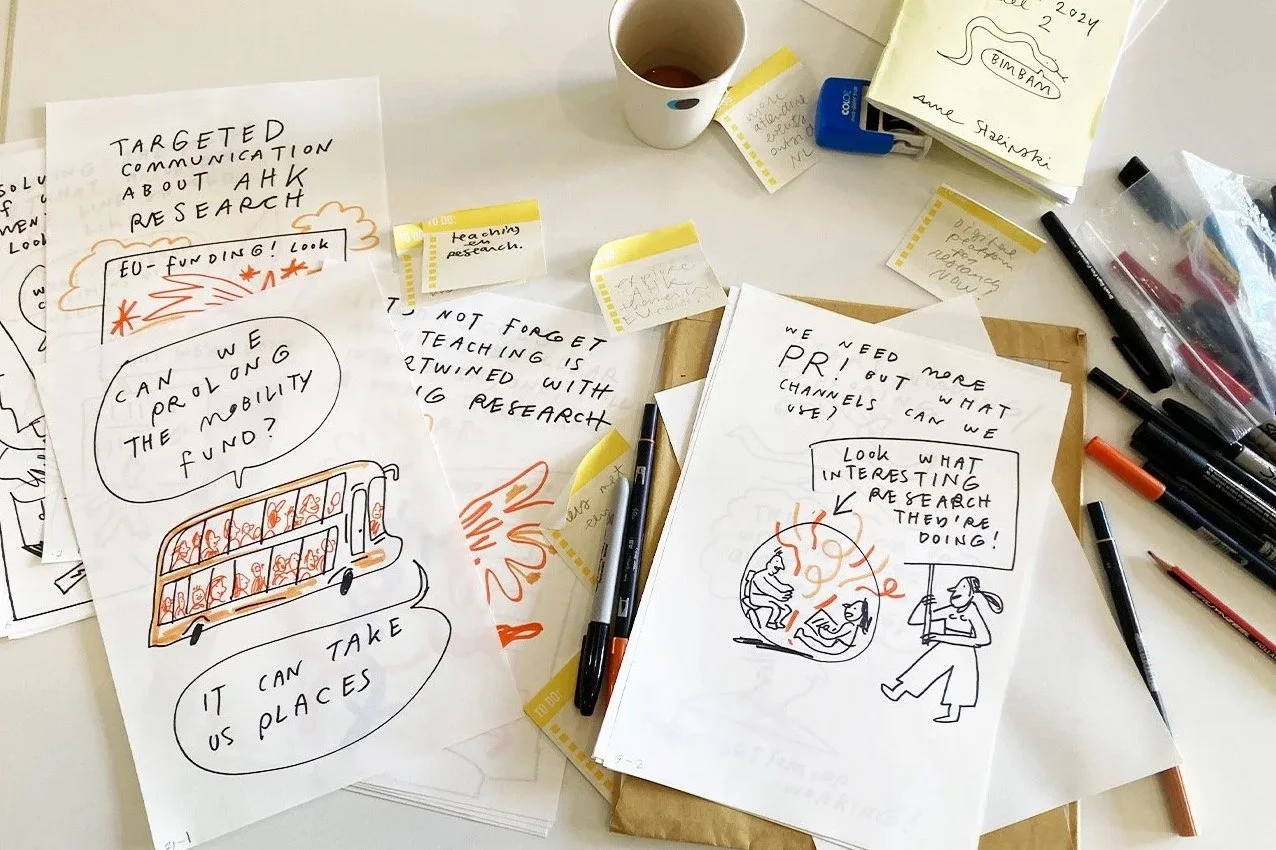 TARGETED
COMMUNICATION
ABOUT AHK
RESEARCH
EU-FUNDING! LOOK
CAN WE
PROLONG
THE MOBILITY
FUND?
IT CAN TAKE
US PLACES
21-1
SOLV
LOOK
TO DO:
teaching
en
research.
NOT FORGET
TEACHING IS
RTWINED WITH
NG RESEARCH
TO DO:
more
attending
events
outside
NL
COLOP
2024
2
BIMBAM
Anne Stalinski
Digital
platform
for
research
NOW!
WE NEED MORE
PR! BUT WHAT
CHANNELS CAN WE
USE?
LOOK WHAT
INTERESTING
RESEARCH
THEY'RE
DOING!